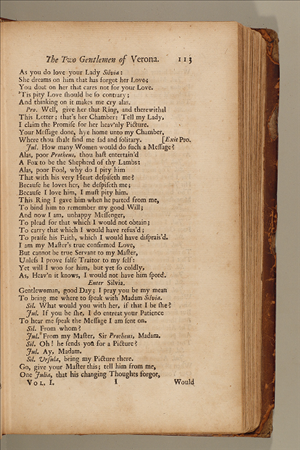 The Two Gentlemen of Verona. 113
As you do love your Lady Silvia:
She dreams on him that has forgot her Love;
You doat on her that cares not for your Love.
'Tis pity Love should be so contrary;
And thinking on it makes me cry alas.
Pro. Well, give her that Ring, and therewithal
This Letter; that's her Chamber: Tell my Lady,
I claim the Promise for her heav'nly Picture.
Your Message done, hye home unto my Chamber,
Where thou shalt find me sad and solitary. [Exit Pro.
Jul. How many Women would do such a Message?
Alas, poor Protheus, thou hast entertain'd
A Fox to be the Shepherd of thy Lambs:
Alas, poor Fool, why do I pity him
That with his very Heart despiseth me?
Because he loves her, he despiseth me;
Because I love him, I must pity him.
This Ring I gave him when he parted from me,
To bind him to remember my good Will;
And now I am, unhappy Messenger,
To plead for that which I would not obtain;
To carry that which I would have refus'd;
To praise his Faith, which I would have disprais'd.
I am my Master's true confirmed Love,
But cannot be true Servant to my Master,
Unless I prove false Traitor to my self:
Yet will I woo for him, but yet so coldly,
As, Heav'n it knows, I would not have him speed.
Enter Silvia.
Gentlewoman, good Day; I pray you be my mean
To bring me where to speak with Madam Silvia.
Sil. What would you with her, if that I be she?
Jul. If you be she, I do entreat your Patience
To hear me speak the Message I am sent on.
Sil. From whom?
Jul. From my Master, Sir Protheus, Madam.
Sil. Oh! he sends you for a Picture?
Jul. Ay, Madam.
Sil. Ursula, bring my Picture there.
Go, give your Master this; tell him from me,
One Julia, that his changing Thoughts forgot,
VOL. I. I Would